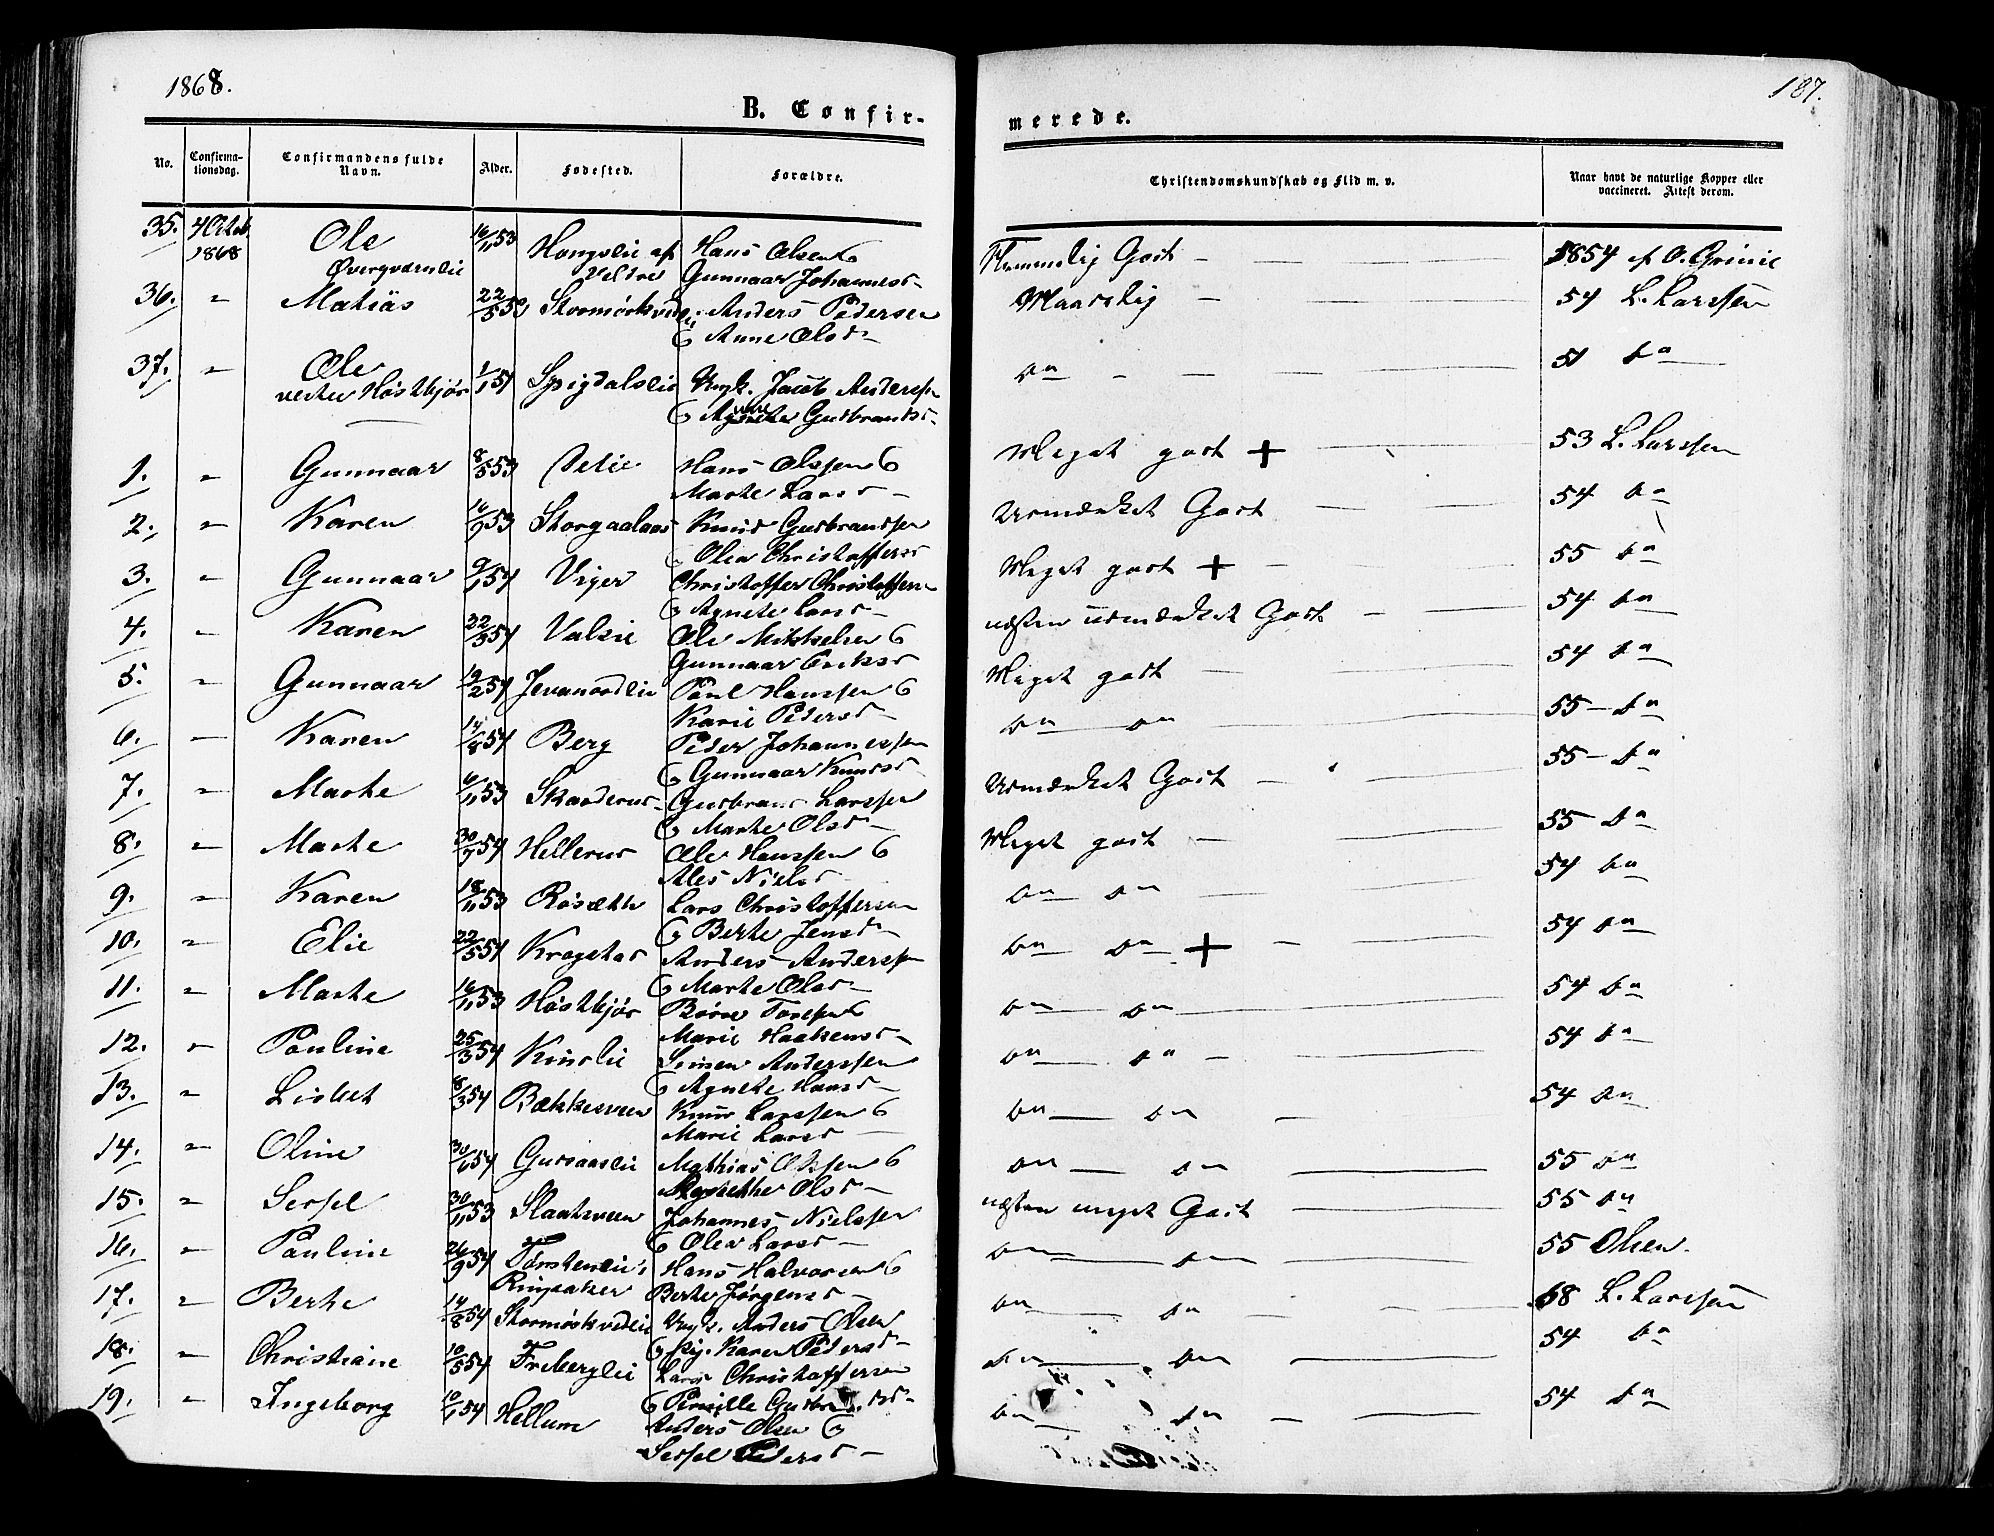 1868.
187.
B. Confir-
merede.
No.
Confirma-
tionsdag.
Confirmandens fulde
Navn.
Alder.
Fødested.
Forældre.
Christendomskundskab og Flid m. v.
Naar havt de naturlige Kopper eller
vaccineret. Attest derom.
35. 4 Octob 1868 Ole 16/11 53 Hans Olsen &
Gunnaar Johannesd
Godt 1854 af O.
36. " Mathias 22/5 53 Anders Pedersen
& Anne Olsd
Maadelig 54 L. Larssen
37. " Ole 1/1 54 Spigdalseie Ungk. Jacob Anderss
vestre Høstkjøs & Gudbrandsd
do 51 do
1. " Gunnaar 8/5 53 Hans Olssen &
Marthe Larsd
Meget godt + 53 L. Larssen
2. " Karen 16/9 53 Knud Gudbrandssen
& Olea Christoffersd
Udmærket Godt 54 do
3. " Gunnaar 9/1 54 Viger Christoffer Christoffersen
& Agnete Larsd
Meget godt + 55 do
4. " Karen 22/3 54 Ole Mikkelsen &
Gunnaar Eriksd
næsten udmærket Godt 54 do
5. " Gunnaar 19/2 54 Paul Hanssen &
Karie Pedersd
Meget godt 54 do
6. " Karen 14/8 54 Berg Peder Johannessen
& Gunnaar Knudsd
do do 55 do
7. " Marthe 6/11 53 Skaarderud Gudbrand Larssen
& Marthe Olsd
Udmærket Godt 55 do
8. " Marthe 30/7 54 Hellerud Ole Hanssen &
Ales Nielsd
Meget godt 55 do
9. " Karen 18/11 53 Lars Christoffersen
& Berthe Jensd
do do 54 do
10. " Elie 22/5 54 Kragstad Anders Anderss
& Marthe Olsd
do do + 54 do
11. " Marthe 16/11 53 Høstkjøs &
Marie Haakensd
do do 54 do
12. " Pauline 25/3 54 Simen Anderssen
& Agnete Hansd
do do 54 do
13. " Lisbet 8/3 54 Bækkesveen Knud Larssen &
Marie Larsd
do do 54 do
14. " Oline 30/6 54 Mathias Olssen &
Olsd
do do 55 do
15. " Sersel 30/11 53 Slaatsveen Johannes Nielssen
& Olea Larsd
næsten meget Godt 55 do
16. " Pauline 26/9 54 Hans Halvorsen &
Ringsaker Berthe Jørgensd
do do 55 Olsen.
17. " Berthe 14/8 54 Ungk. Anders Olsen
& pig. Karen Pedersd
do do 68 L. Larssen
18. " Christiane 10/5 54 Frebergeie Lars Christoffersen
& Pernille Gudbrandsd
do do 54 do
19. " Ingeborg 10/1 54 Hellum Anders Olsen &
Sersel Pedersd
do do 54 do